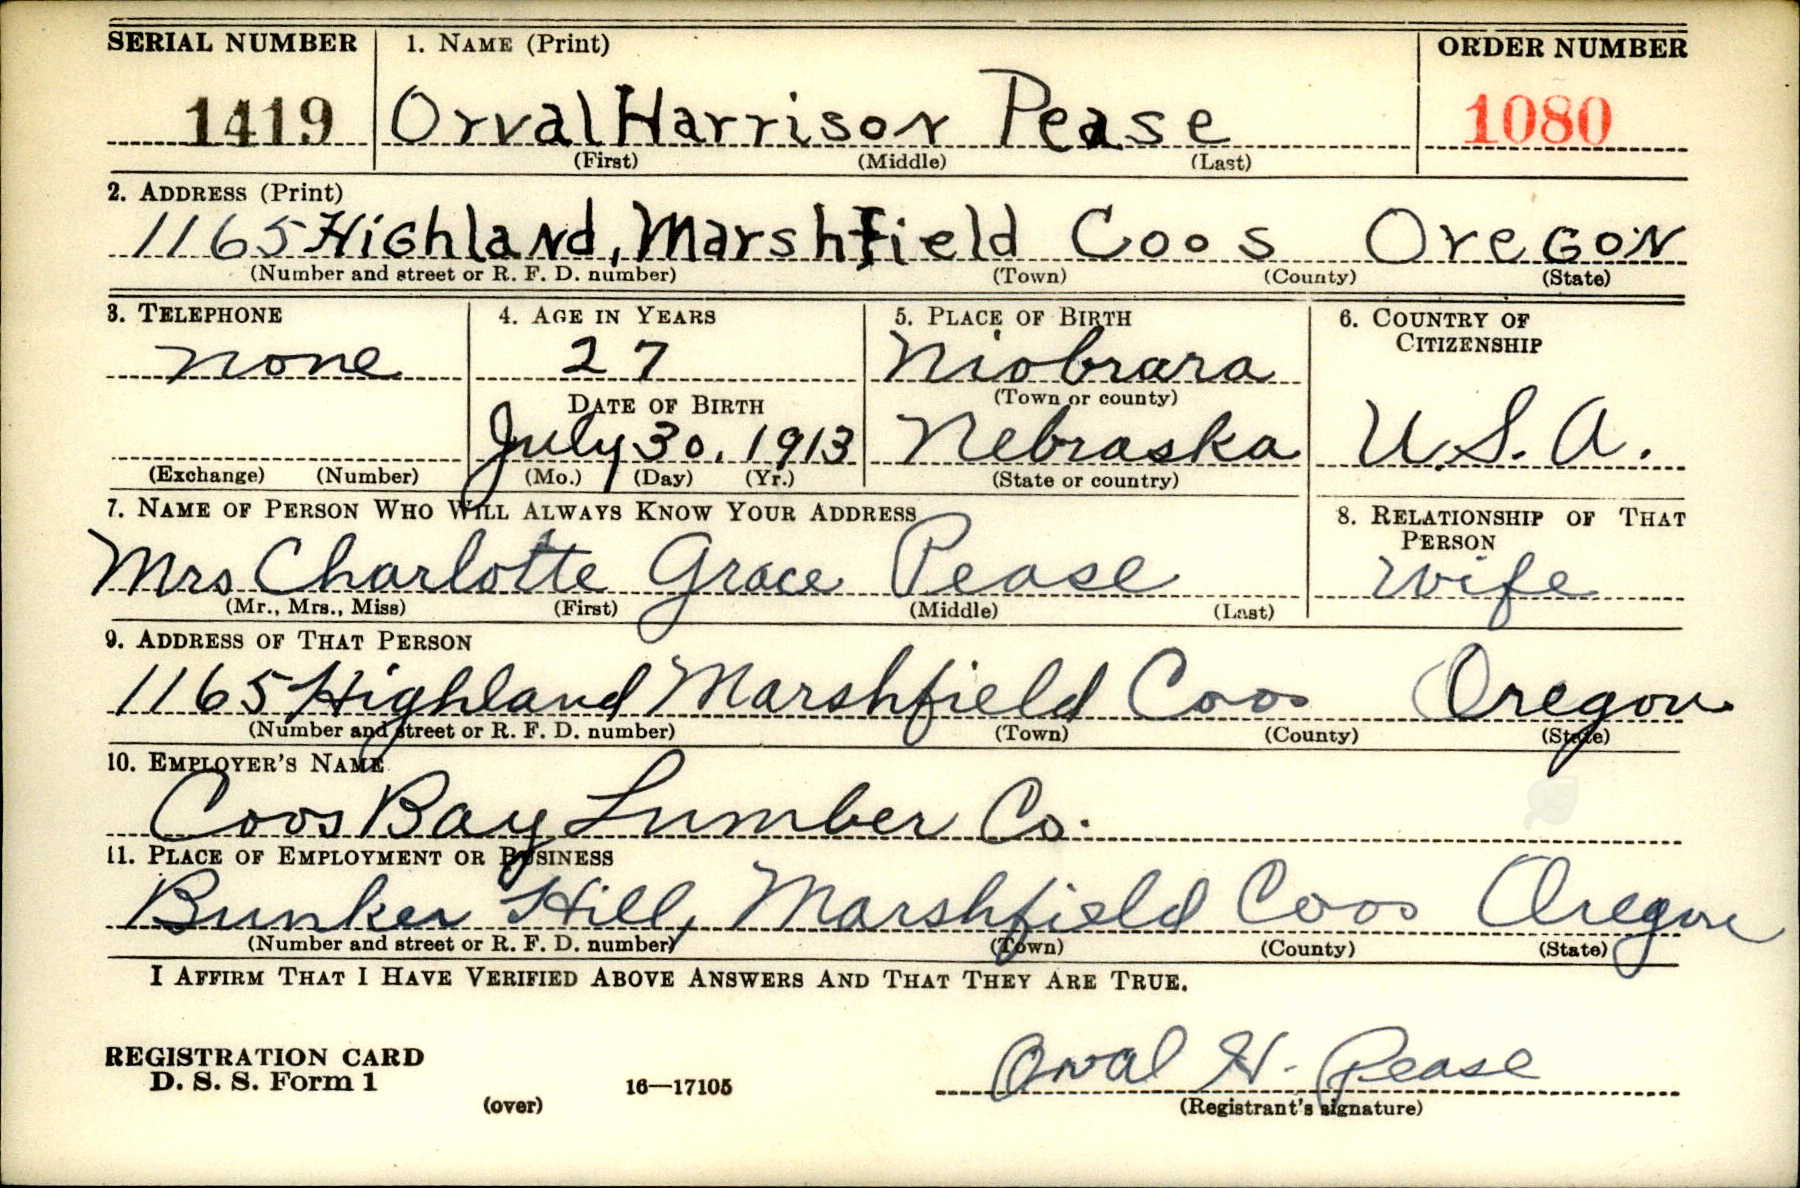 SERIAL NUMBER 1. NAME (Print) ORDER NUMBER
1419 Orval Harrison Pease 1080
(First) (Middle) (Last)
2. ADDRESS (Print)
1165 Highland, Marshfield Coos Oregon
(Number and street or R. F. D. number) (Town) (County) (State)
3. TELEPHONE 4. AGE IN YEARS 5. PLACE OF BIRTH 6. COUNTRY OF
CITIZENSHIP
none 27 Niobrara
(Town or county)
DATE OF BIRTH
July 30, 1913 Nebraska U.S.A.
(Exchange) (Number) (Mo.) (Day) (Yr.) (State or country)
7. NAME OF PERSON WHO WILL ALWAYS KNOW YOUR ADDRESS 8. RELATIONSHIP OF THAT
PERSON
Mrs Charlotte Grace Pease wife
(Mr., Mrs., Miss) (First) (Middle) (Last)
9. ADDRESS OF THAT PERSON
1165 Highland Marshfield Coos Oregon
(Number and street or R. F. D. number) (Town) (County) (State)
10. EMPLOYER'S NAME
Coos Bay Lumber Co.
11. PLACE OF EMPLOYMENT OR BUSINESS
Bunker Hill, Marshfield Coos Oregon
(Number and street or R. F. D. number) (Town) (County) (State)
I AFFIRM THAT I HAVE VERIFIED ABOVE ANSWERS AND THAT THEY ARE TRUE.
REGISTRATION CARD
D. S. S. Form 1 Orval H. Pease
(over) 16—17105 (Registrant's signature)